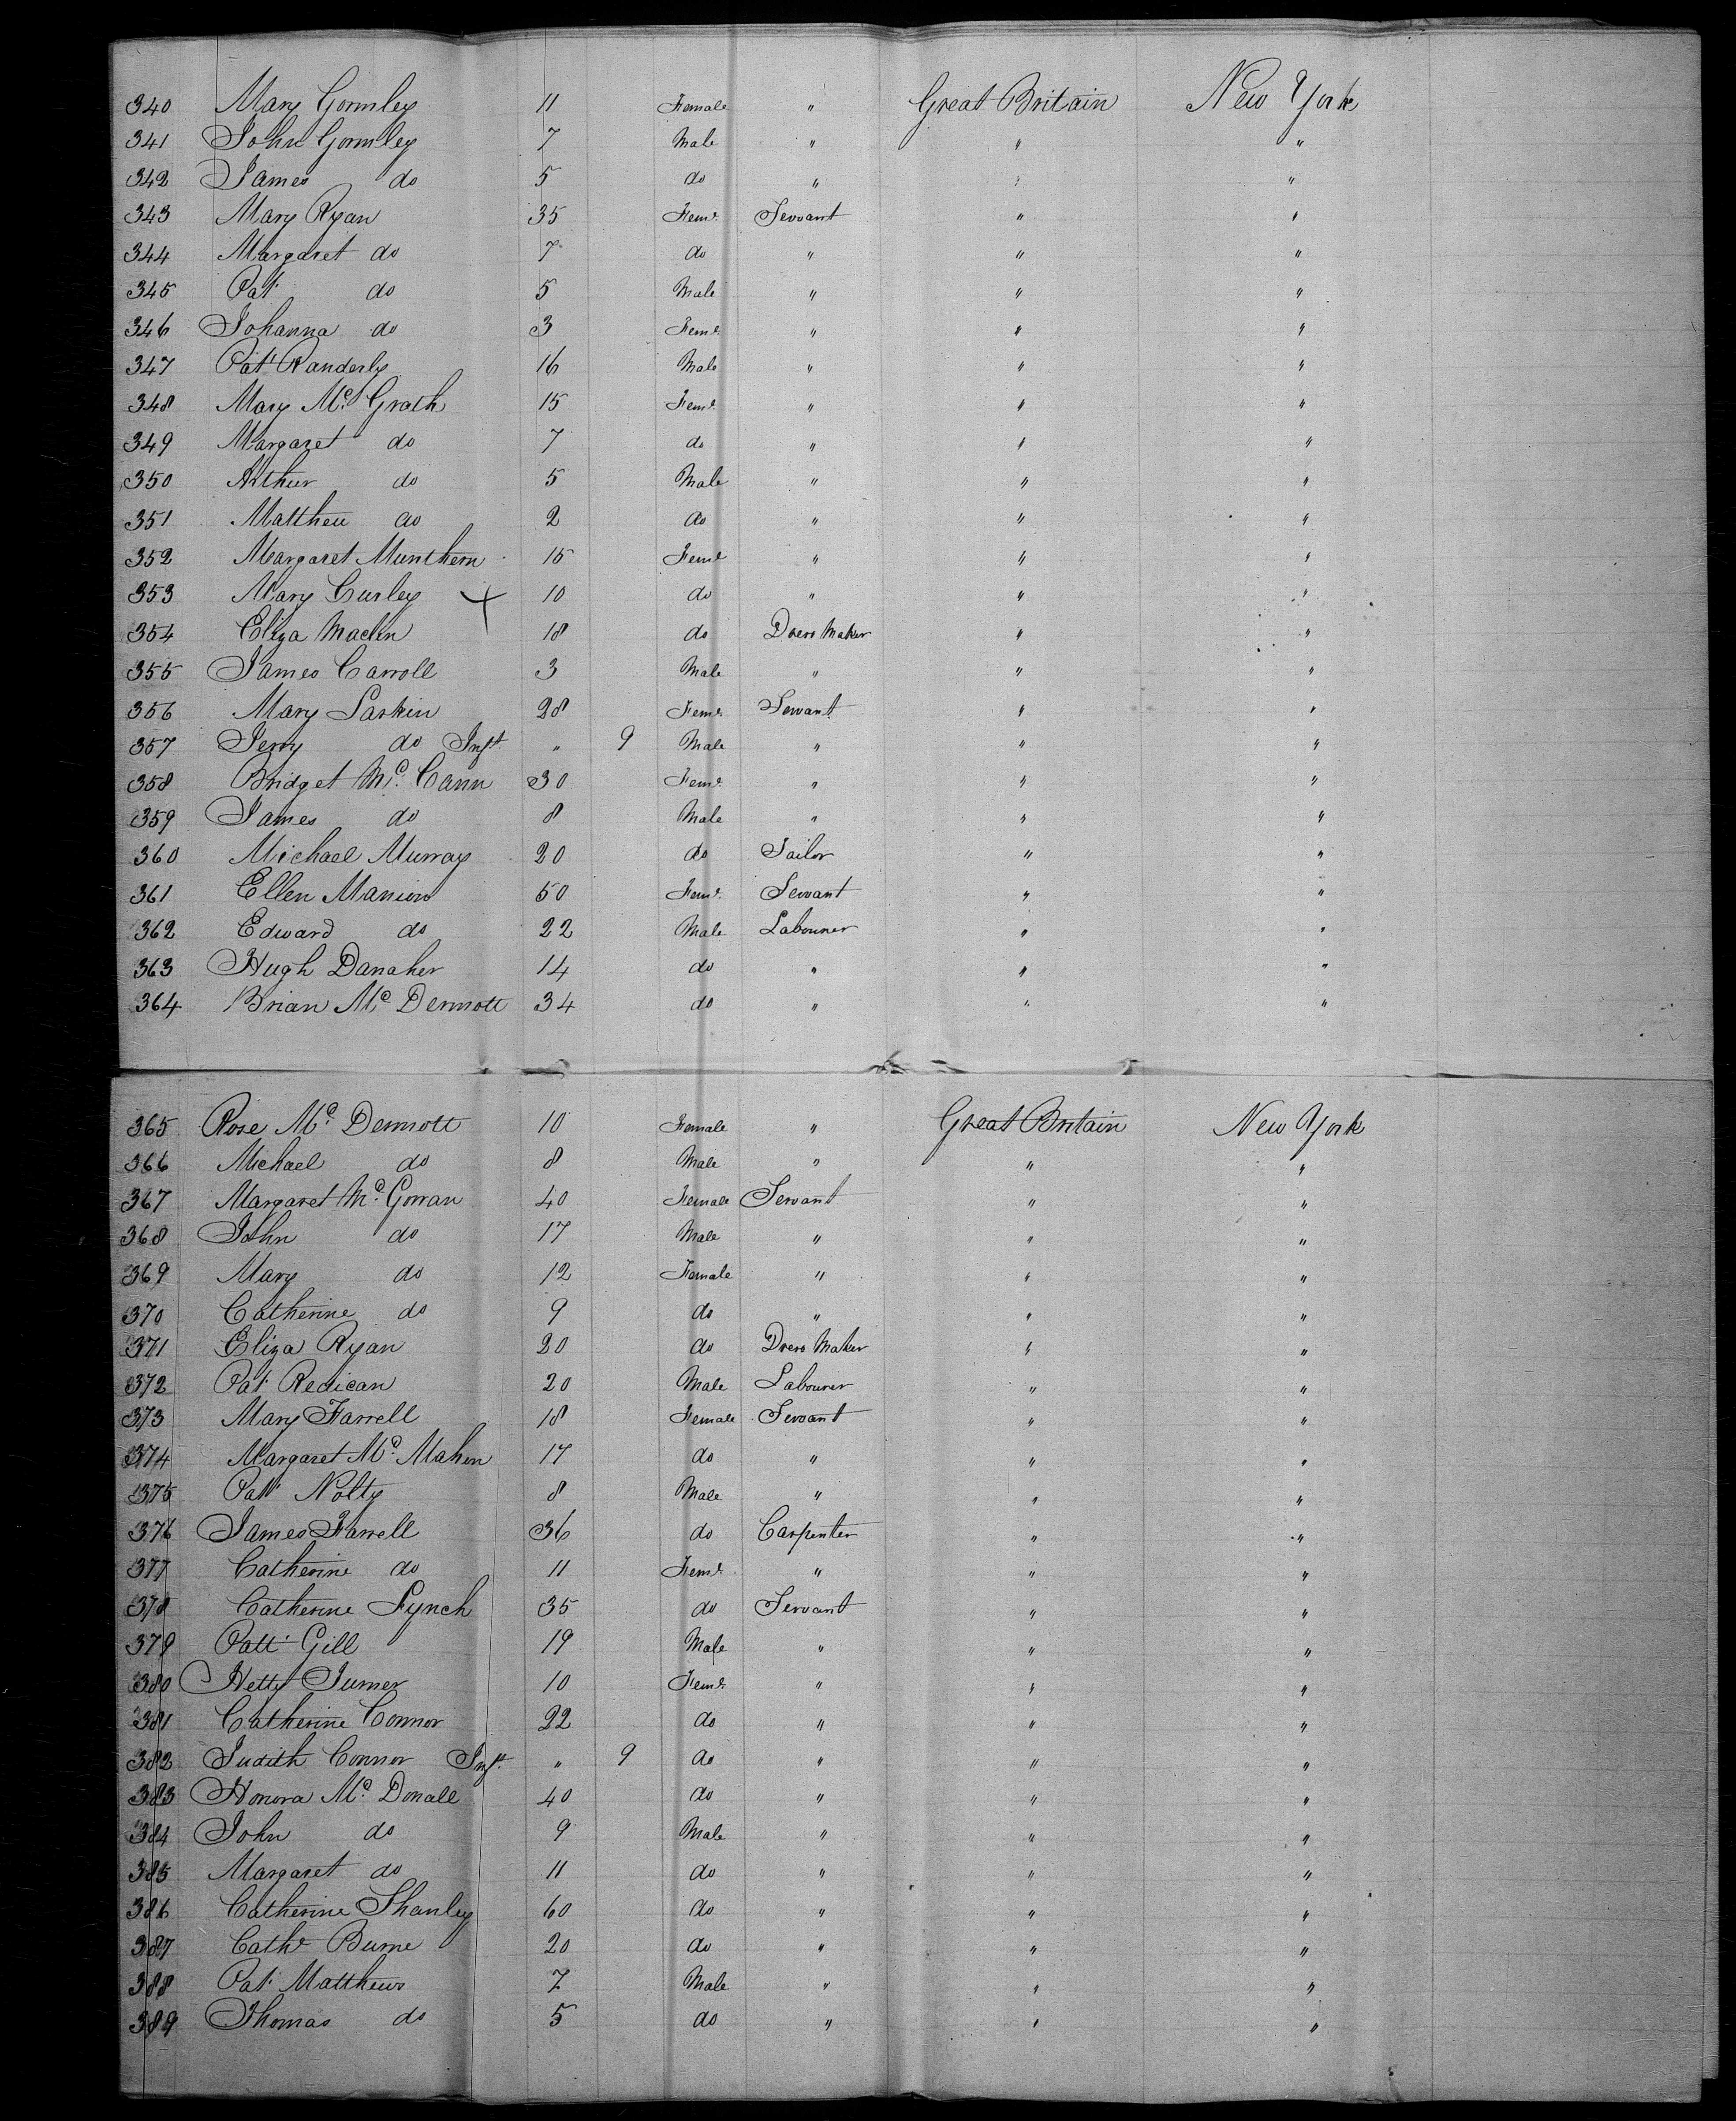 340 Mary Gormley 11 Female " Great Britain New York
341 John Gormley 7 Male " " "
342 James do 5 do " " "
343 Mary Ryan 35 Feme. Servant " "
344 Margaret do 7 do " " "
345 Pat do 5 Male " " "
346 Johanna do 3 Feme. " " "
347 Pat Randerly 16 Male " " "
348 Mary Mc. Grath 15 Feme. " " "
349 Margaret do 7 do " " "
350 Arthur do 5 Male " " "
351 Mattheu do 2 do " " "
352 Margaret Munthern 15 Feme " " "
353 Mary Curley + 10 do " " "
354 Eliza Machn 18 do Dress Maker " "
355 James Carroll 3 Male " " "
356 Mary Larkin 28 Feme. Servant " "
357 Jerry do Inft. " 9 Male " " "
358 Bridget Mc. Cann 30 Feme. " " "
359 James do 8 Male " " "
360 Michael Murray 20 do Tailor " "
361 Ellen Manion 50 Feme. Servant " "
362 Edward do 22 Male Labourer " "
363 Hugh Danaher 14 do " " "
364 Brian Mc Dermott 34 do " " "
365 Rose Mc. Dermott 10 Female " Great Britain New York
366 Michael do 8 Male " " "
367 Margaret Mc. Gowan 40 Female Servant " "
368 John do 17 Male " " "
369 Mary do 12 Female " " "
370 Catherine do 9 do " " "
371 Eliza Ryan 20 do Dress Maker " "
372 Pat Redican 20 Male Labourer " "
373 Mary Farrell 18 Female Servant " "
374 Margaret Mc. Mahon 17 do " " "
375 Patt Nolty 8 Male " " "
376 James Farrell 36 do Carpenter " "
377 Catherine do 11 Feme. " " "
378 Catherine Lynch 35 do Servant " "
379 Patt. Gill 19 Male " " "
380 Hetty Turner 10 Feme. " " "
381 Catherine Connor 22 do " " "
382 Judith Connor Inft. " 9 do " " "
383 Honora Mc. Donall 40 do " " "
384 John do 9 Male " " "
385 Margaret do 11 do " " "
386 Catherine Shanley 60 do " " "
387 Cathe Burne 20 do " " "
388 Pat. Matthews 7 Male " " "
389 Thomas do 5 do " " "